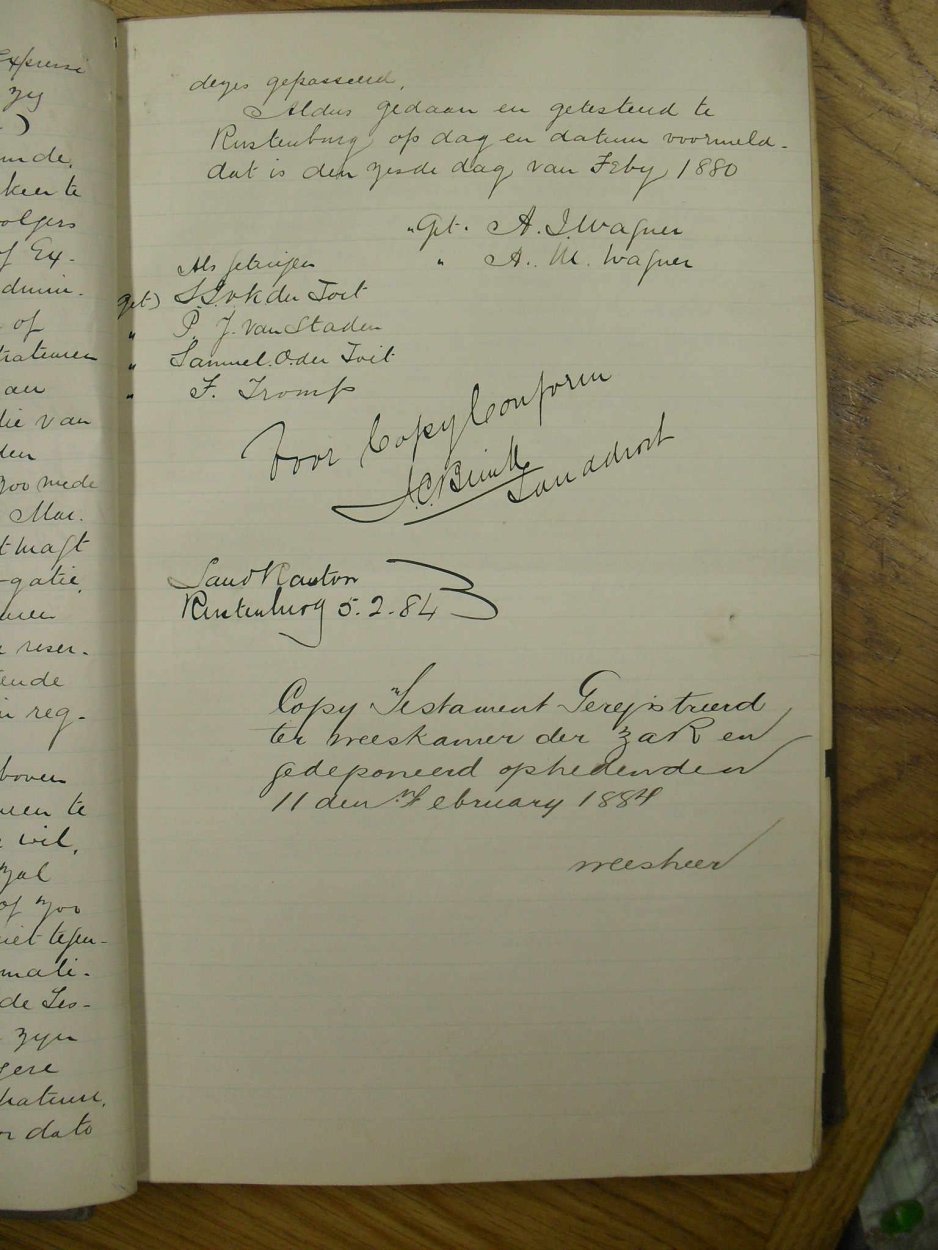 Expresse
zij
)
unde,
keer te
volgers
of Ex-
admin-
of
trateuren
an
die van
den
zoo mede
Mac.
t magt
-gatie,
reser-
ende
reg-
boven
te
wil,
zal
of zoo
niet tegen-
mati-
de Tes-
zijn
gere
trateur,
dato
dezes gepasseerd,
Aldus gedaan en getesteerd te
Rustenburg op dag en datum voormeld-
dat is den zesde dag van Feby 1880
"Get" A. J. Wagner
" A. M. Wagner
Als getuigen
get) S.J.v.k der Toit
" P. J. van Staden
" Samuel. O. der Toit
" F. Tromp
Voor Copy Conform
A.C. Brink
Landdrost
Landkantor
Rustenburg 5.2.84
Copy Testament Geregistreerd
ter weeskamer der ZAR en
gedeponeerd op heden den
11 den February 1884
weesheer